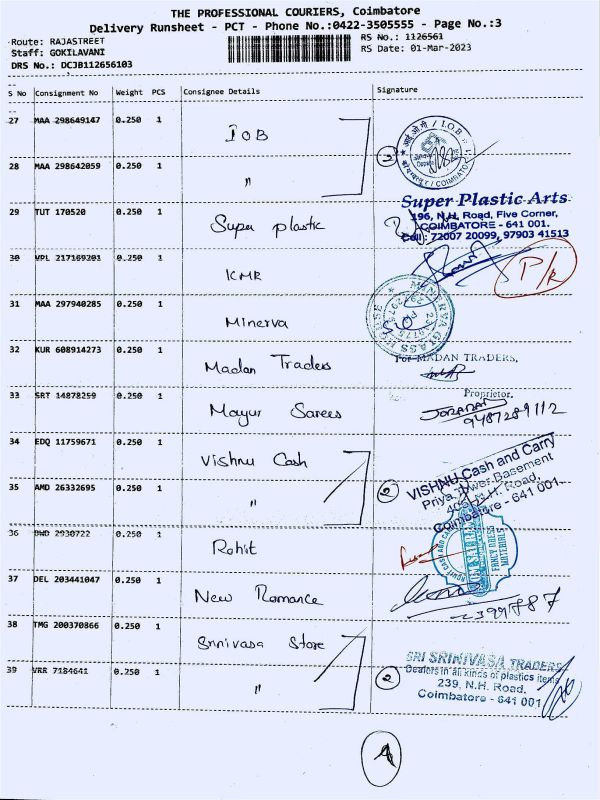 THE PROFESSIONAL COURIERS, Coimbatore
Delivery Runsheet - PCT - Phone No.:0422-3505555 - Page No.:3
Route: RAJASTREET
RS No.: 1126561
Staff: GOKILAVANI
RS Date: 01-Mar-2023
DRS No.: DCJB112656103
S No Consignment No Weight PCS Consignee Details Signature
27 MAA 298649147 0.250 1 IOB
I.O.B
28 MAA 298642059 0.250 1 "
COIMBATO
Super Plastic Arts
29 TUT 170520 0.250 1 Super plastic
196, N.H. Road, Five Corner,
COIMBATORE - 641 001.
Cell : 72007 20099, 97903 41513
30 VPL 217169201 0.250 1 KMR
P/R
31 MAA 297940285 0.250 1 Minerva
MINERVA GLASS HOUSE
32 KUR 608914273 0.250 1 Madan Traders
For MADAN TRADERS,
Proprietor.
33 SRT 14878259 0.250 1 Mayur Sarees
9487289112
34 EDQ 11759671 0.250 1 Vishnu Cash
VISHNU Cash and Carry
Priya Tower Basement
35 AMD 26332695 0.250 1 "
2
406, N.H. Road,
Coimbatore - 641 001.
36 BWD 2930722 0.250 1 Rohit
FANCY DRESS
MATERIALS
37 DEL 203441047 0.250 1 New Romance
2399787
38 TMG 200370866 0.250 1 Srinivasa Store
SRI SRINIVASA TRADERS
39 VRR 7184641 0.250 1 "
2
Dealers in all kinds of plastics items
239, N.H. Road.
Coimbatore - 641 001